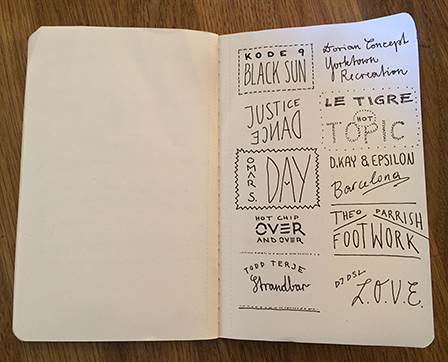 KODE 9
BLACK SUN
JUSTICE
DANCE
OMAR S.
DAY
HOT CHIP
OVER
AND OVER
TODD TERJE
Strandbar
Dorian Concept
Yorktown
Recreation
LE TIGRE
HOT
TOPIC
D.KAY & EPSILON
Barcelona
THEO PARRISH
FOOTWORK
DJ DSL
L.O.V.E.